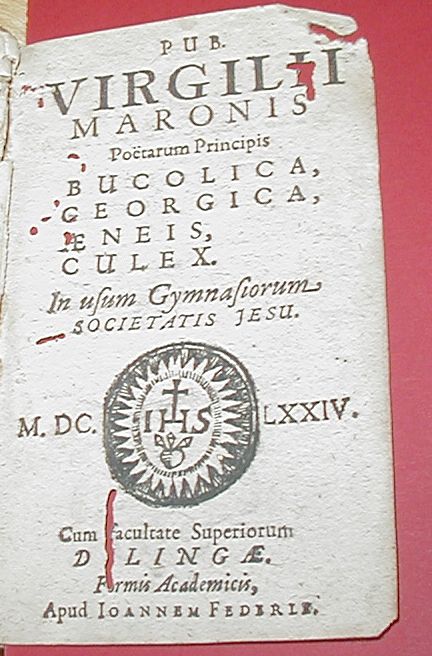 PUB.
VIRGILII
MARONIS
Poëtarum Principis
BUCOLICA,
GEORGICA,
ÆNEIS,
CULEX.
In uſum Gymnaſiorum
SOCIETATIS JESU.
M. DC. LXXIV.
IHS
Cum facultate Superiorum
DILINGÆ.
Formis Academicis,
Apud IOANNEM FEDERLE.